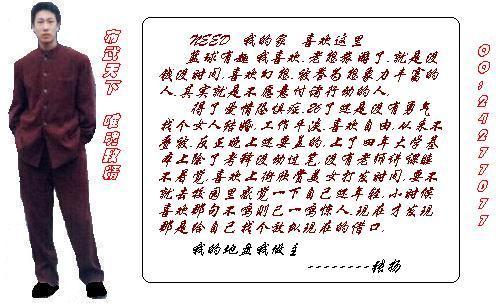 布武天下 唯魂致胯
NEED 我的家 喜欢这里
蓝球有趣 我喜欢.老想旅游了.就是没
钱没时间.喜欢幻想.被誉为想象力丰富的
人.其实就是不愿意付诸行动的人.
得了爱情恐惧症.26了还是没有勇气
找个女人结婚.工作平淡.喜欢自由.从来不
看钱.反正晚上还要差的.上了四年大学基
本上除了考辩没动过笔.没有老师讲课睡
不着觉.喜欢上街欣赏美女打发时间.要不
就去校园里感觉一下自己还年轻.小时候
喜欢那句不鸣则已一鸣惊人.现在才发现
那是给自己找个放纵现在的借口.
我的地盘我做主
--------张扬
QQ:24277077